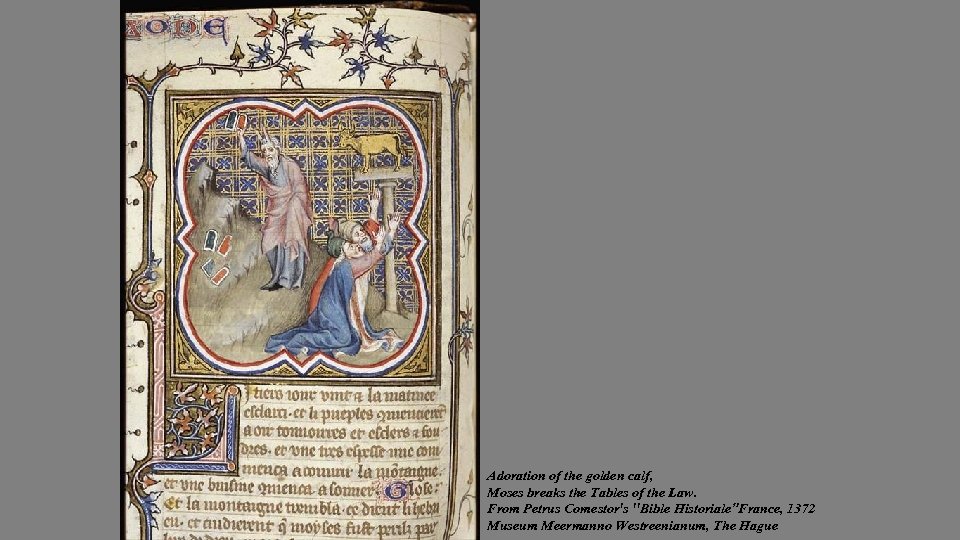 ONE
tiers iour vint & la matinee
esclarci. et li pueples
a oir tonnoirres et esclers & fou
dres. et vne tres espesse nue com
menca a couurir la
et vne buisine a sonner. Glose.
Et la montaigne trembla. ce dient li hebri
eu. et entendirent
Adoration of the golden calf,
Moses breaks the Tables of the Law.
From Petrus Comestor's "Bible Historiale"France, 1372
Museum Meermanno Westreenianum, The Hague